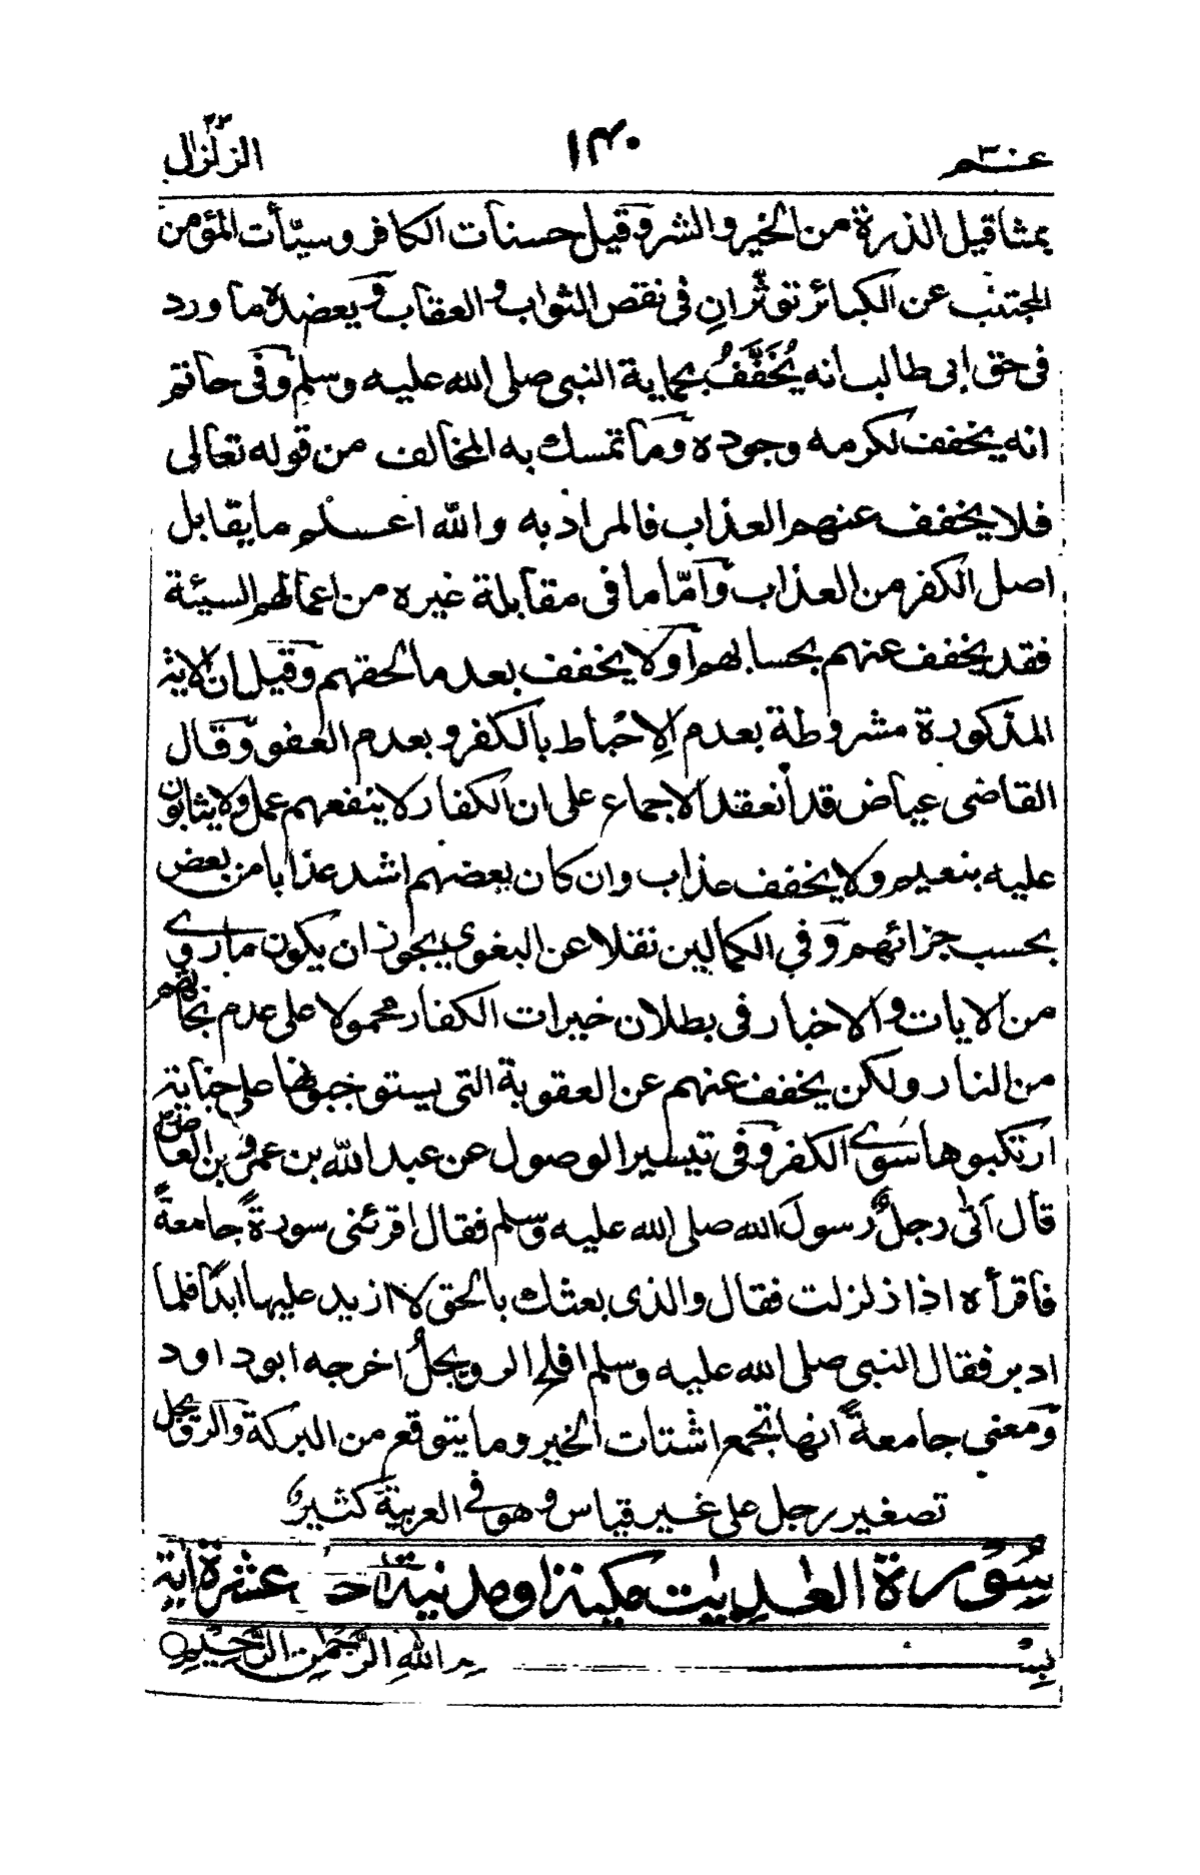 عم ٣٠ ١٤٠ الزلزال ٢٢
بمثاقيل الذرة من الخير والشر وقيل حسنات الكافر وسيّأت المؤمن
المجتنب عن الكبائر تؤثّران في نقص الثواب والعقاب ويعضده ما ورد
في حق ابى طالب انه يُخَفَّفُ بحماية النبى صلى الله عليه وسلم وفى حاتم
انه يخفف لكرمه وجوده وما تمسك به المخالف من قوله تعالى
فلا يخفف عنهم العذاب فالمراد به والله اعلم ما يقابل
اصل الكفر من العذاب وامّا ما فى مقابلة غيره من اعمالهم السيئة
فقد يخفف عنهم بحسابهم او لا يخفف بعد مالحقهم وقيل ان الاية
المذكورة مشروطة بعدم الِاحْباط بالكفر و بعدم العفو وقال
القاضى عياض قد انعقد الاجماع على ان الكفار لا ينفعهم عمل ولا يثابون
عليه بنعيم ولا يخفف عذاب وان كان بعضهم اشد عذابا من بعض
بحسب جزائهم وفي الكمالين نقلا عن البغوي يجوز ان يكون ما روي
من الايات والاخبار فى بطلان خيرات الكفار محمولا على عدم نجاتهم
من النار ولكن يخفف عنهم عن العقوبة التى يستوجبونها على جناية
ارتكبوها سوي الكفر وفى تيسير الوصول عن عبد الله بن عمرو بن العاص رض
قال اَتٰى رجلٌ رسولَ الله صلى الله عليه وسلم فقال اقرئنى سورةً جامعةً
فاقرأه اذا زلزلت فقال والذى بعثك بالحق لا ازيد عليها ابدًا فلما
ادبر فقال النبى صلى الله عليه وسلم افلح الرويجلُ اخرجه ابو داود
ومعنى جامعةً انها تجمع اشتات الخير وما يتوقع من البركة والرويجل
تصغير رجل على غير قياس وهو في العربية كثير
سُوْرة العٰديٰت مكية او مدنية احدى عشرة اية
بِسْمِ اللهِ الرَّحْمٰنِ الرَّحِيْمِ